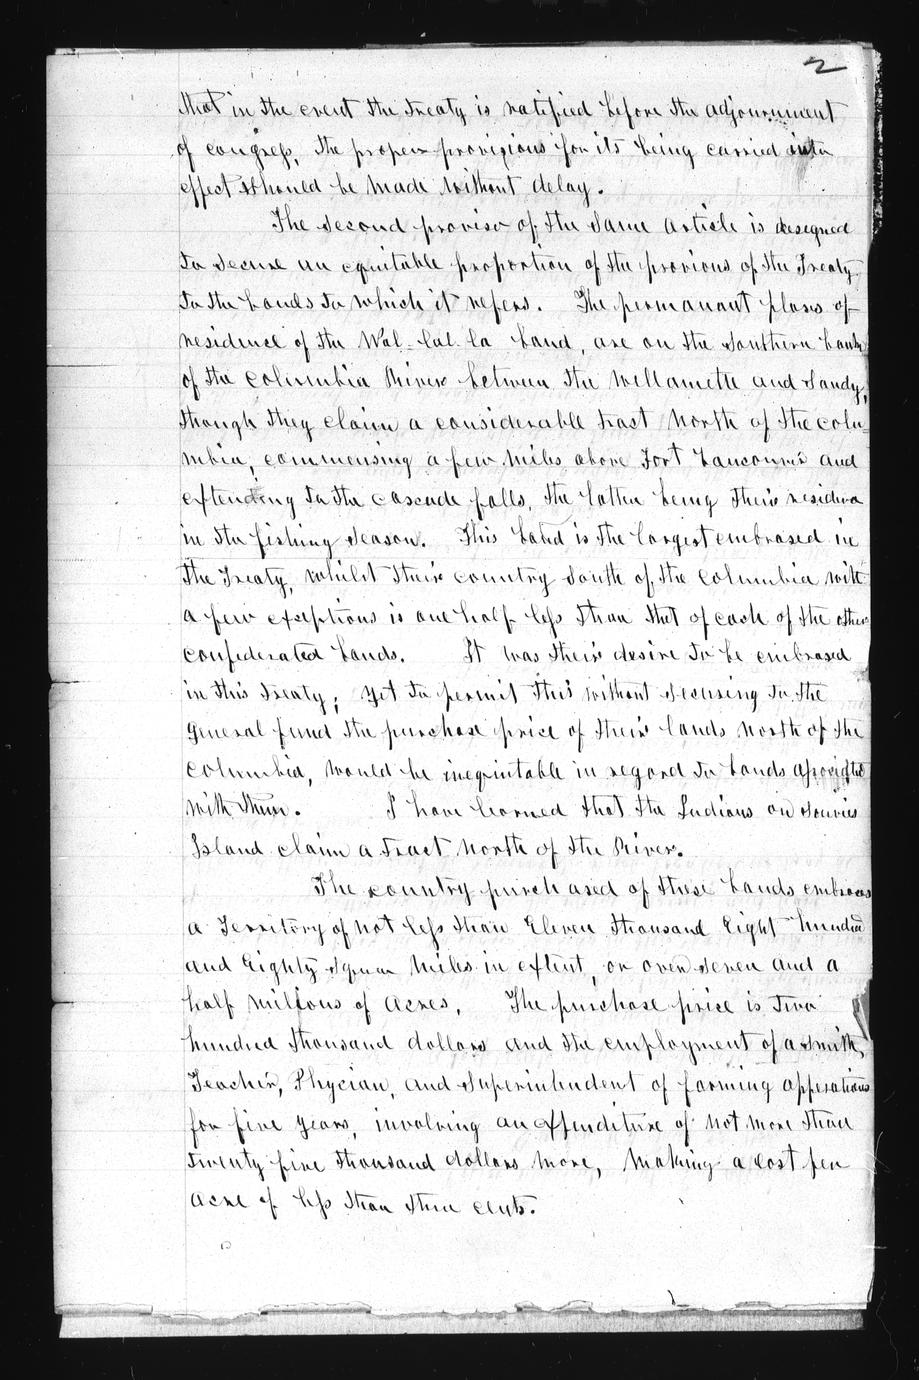 2
that in the event the treaty is ratified before the adjournment
of congress, the proper provisions for its being carried into
effect should be made without delay.
The second proviso of the same article is designed
to secure an equitable proportion of the provious of the Treaty
to the bands to which it refers. The permanant places of
residence of the Wal-lal-la band, are on the Southern bank
of the Columbia River between the Willamette and Sandy,
though they claim a considerable tract North of the Colu-
mbia, commensing a few miles above Fort Vancouver and
extending to the cascade falls, the latter being their residence
in the fishing season. This band is the largest embrased in
the Treaty, whilst their country South of the Columbia with
a few exseptions is one half less than that of each of the other
confederated bands. It was their desire to be embrased
in this treaty; yet to permit this without securing to the
General fund the purchase price of their lands North of the
Columbia, would be inequitable in regard to bands associated
with them. I have learned that the Indians on Souvies
Island claim a tract North of the River.
The country purchased of these bands embraces
a Territory of not less than Eleven thousand Eight hundred
and Eighty square miles in extent, or over seven and a
half millions of acres. The purchase price is two
hundred thousand dollars and the employment of a smith,
Teacher, Phycian, and Superintendent of farming opperations
for five years, involving an expenditure of not more than
twenty five thousand dollars more, making a cost per
acre of less than three cents.